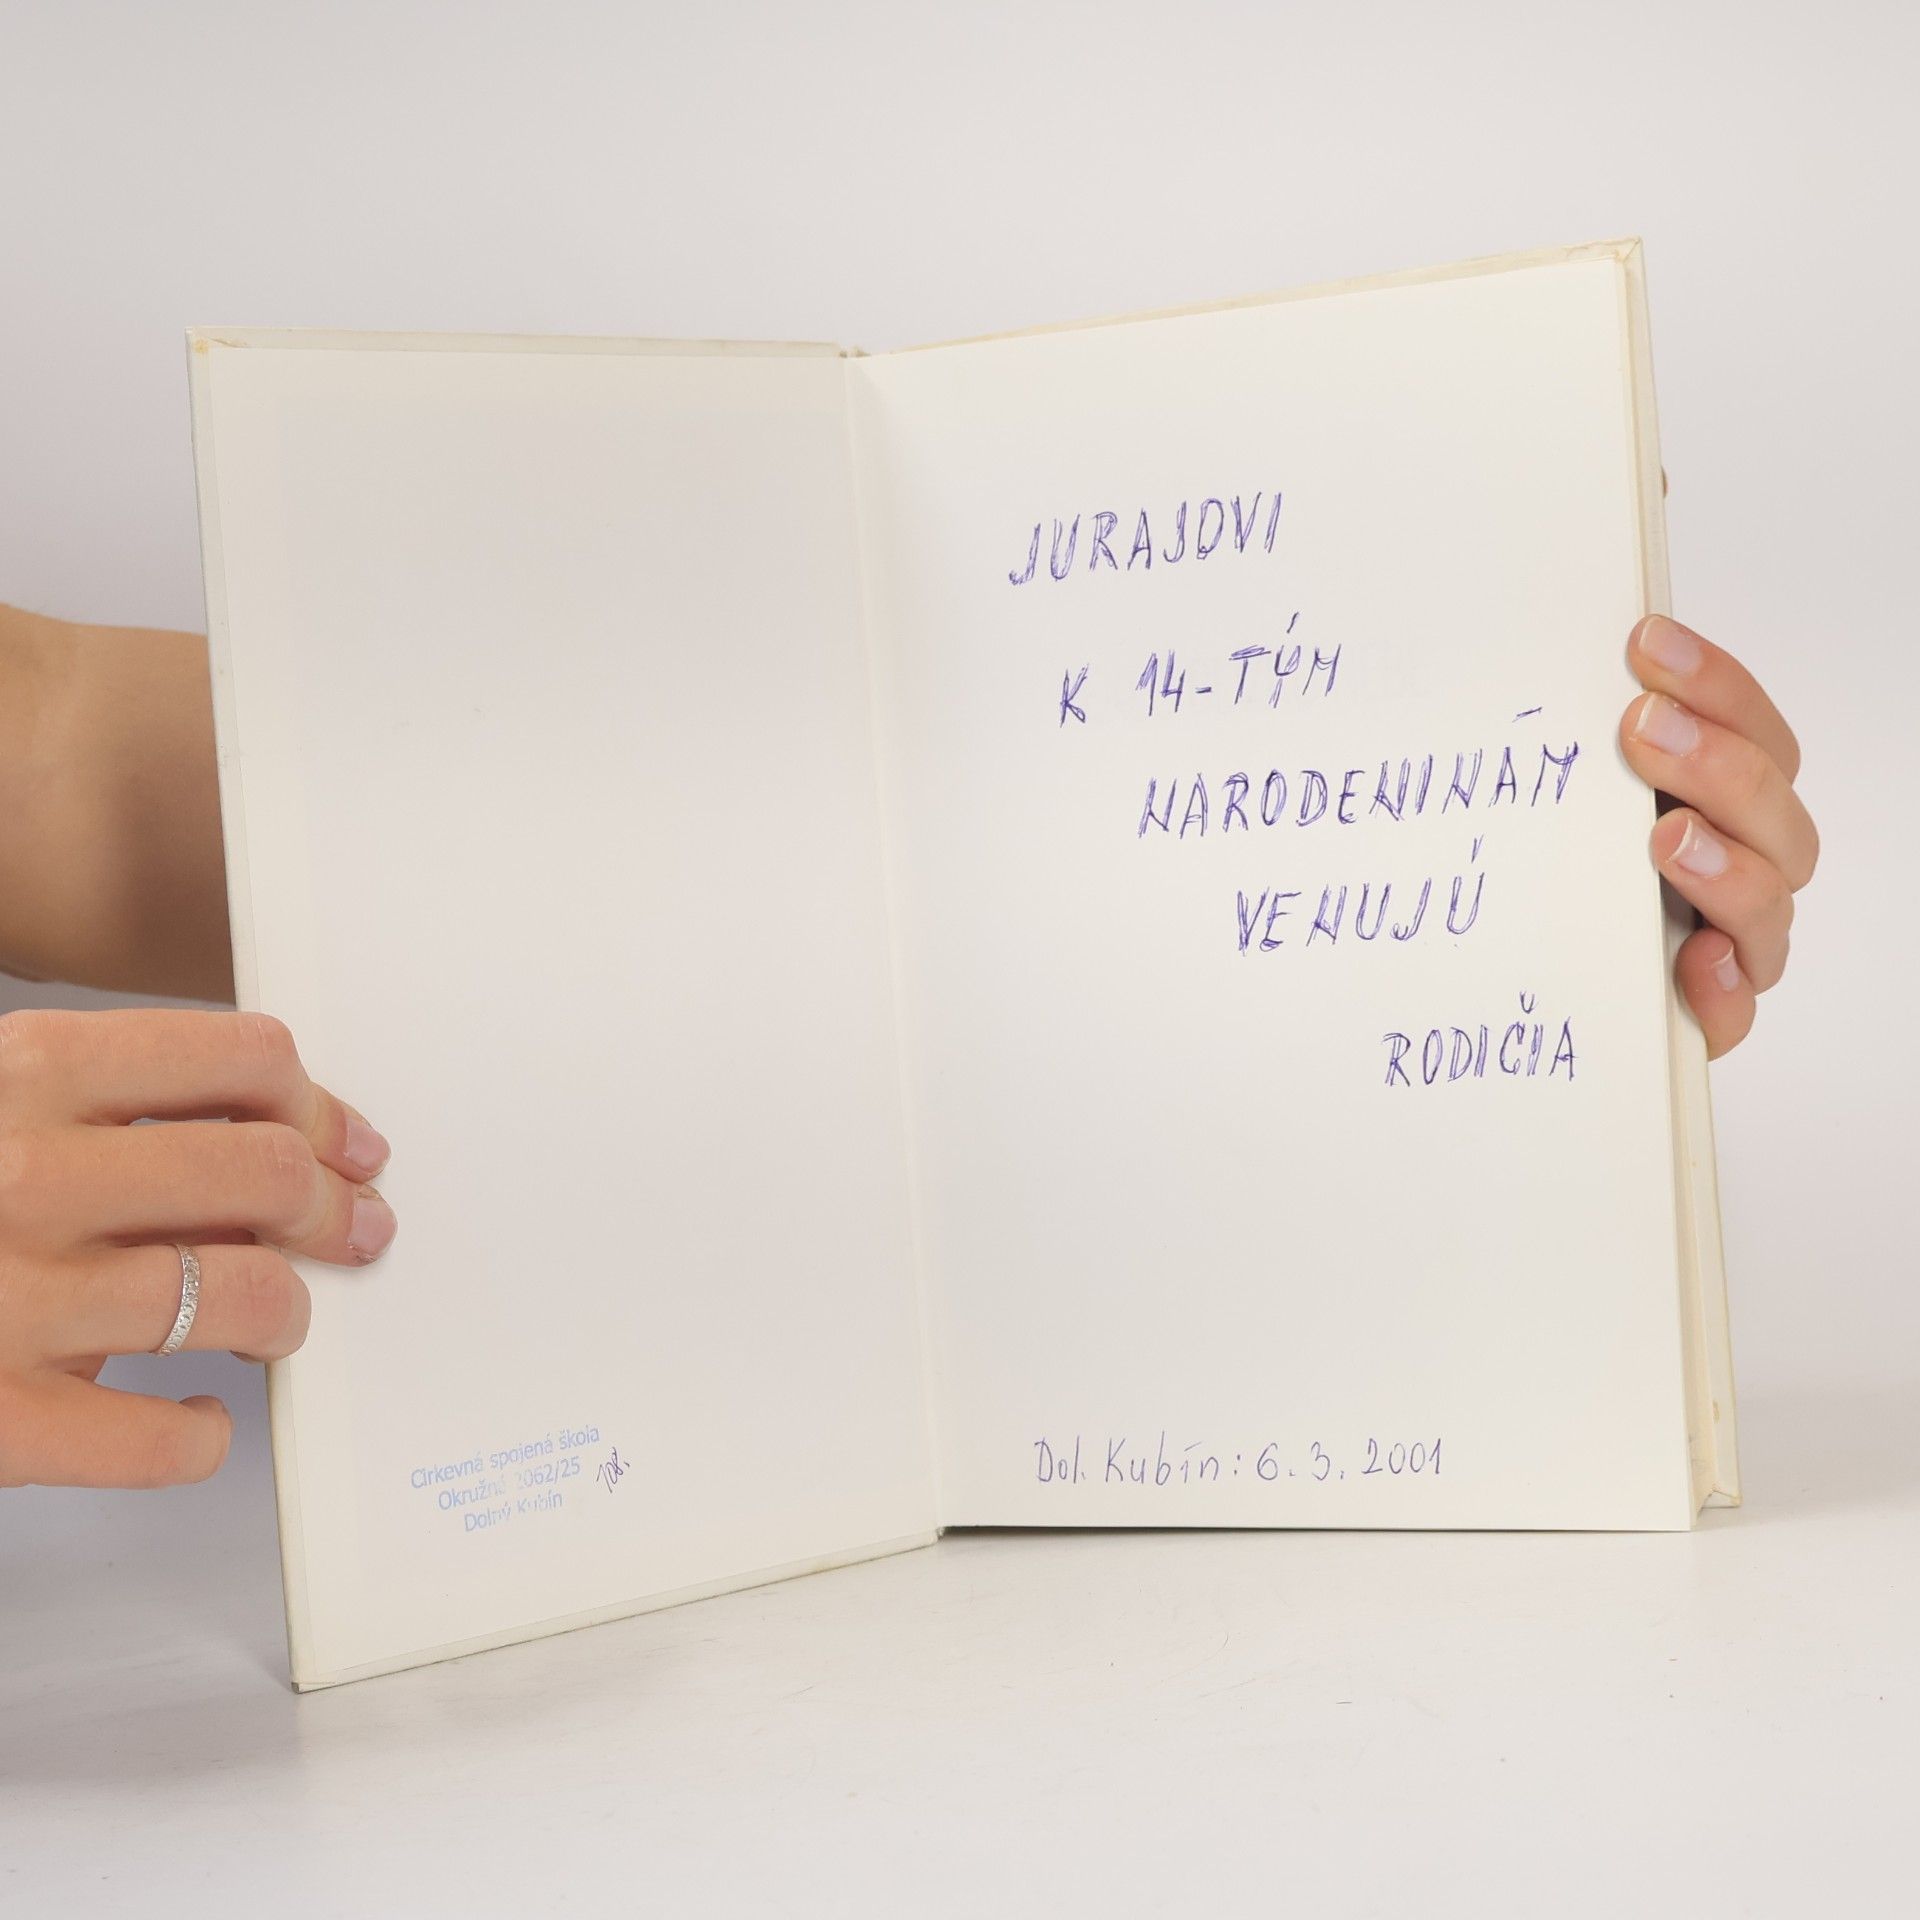 Cirkevná spojená škola
Okružná 2062/25
Dolný Kubín
108.
JURAJOVI
K 14-TÝM
NARODENINÁM
VENUJÚ
RODIČIA
Dol. Kubín: 6. 3. 2001